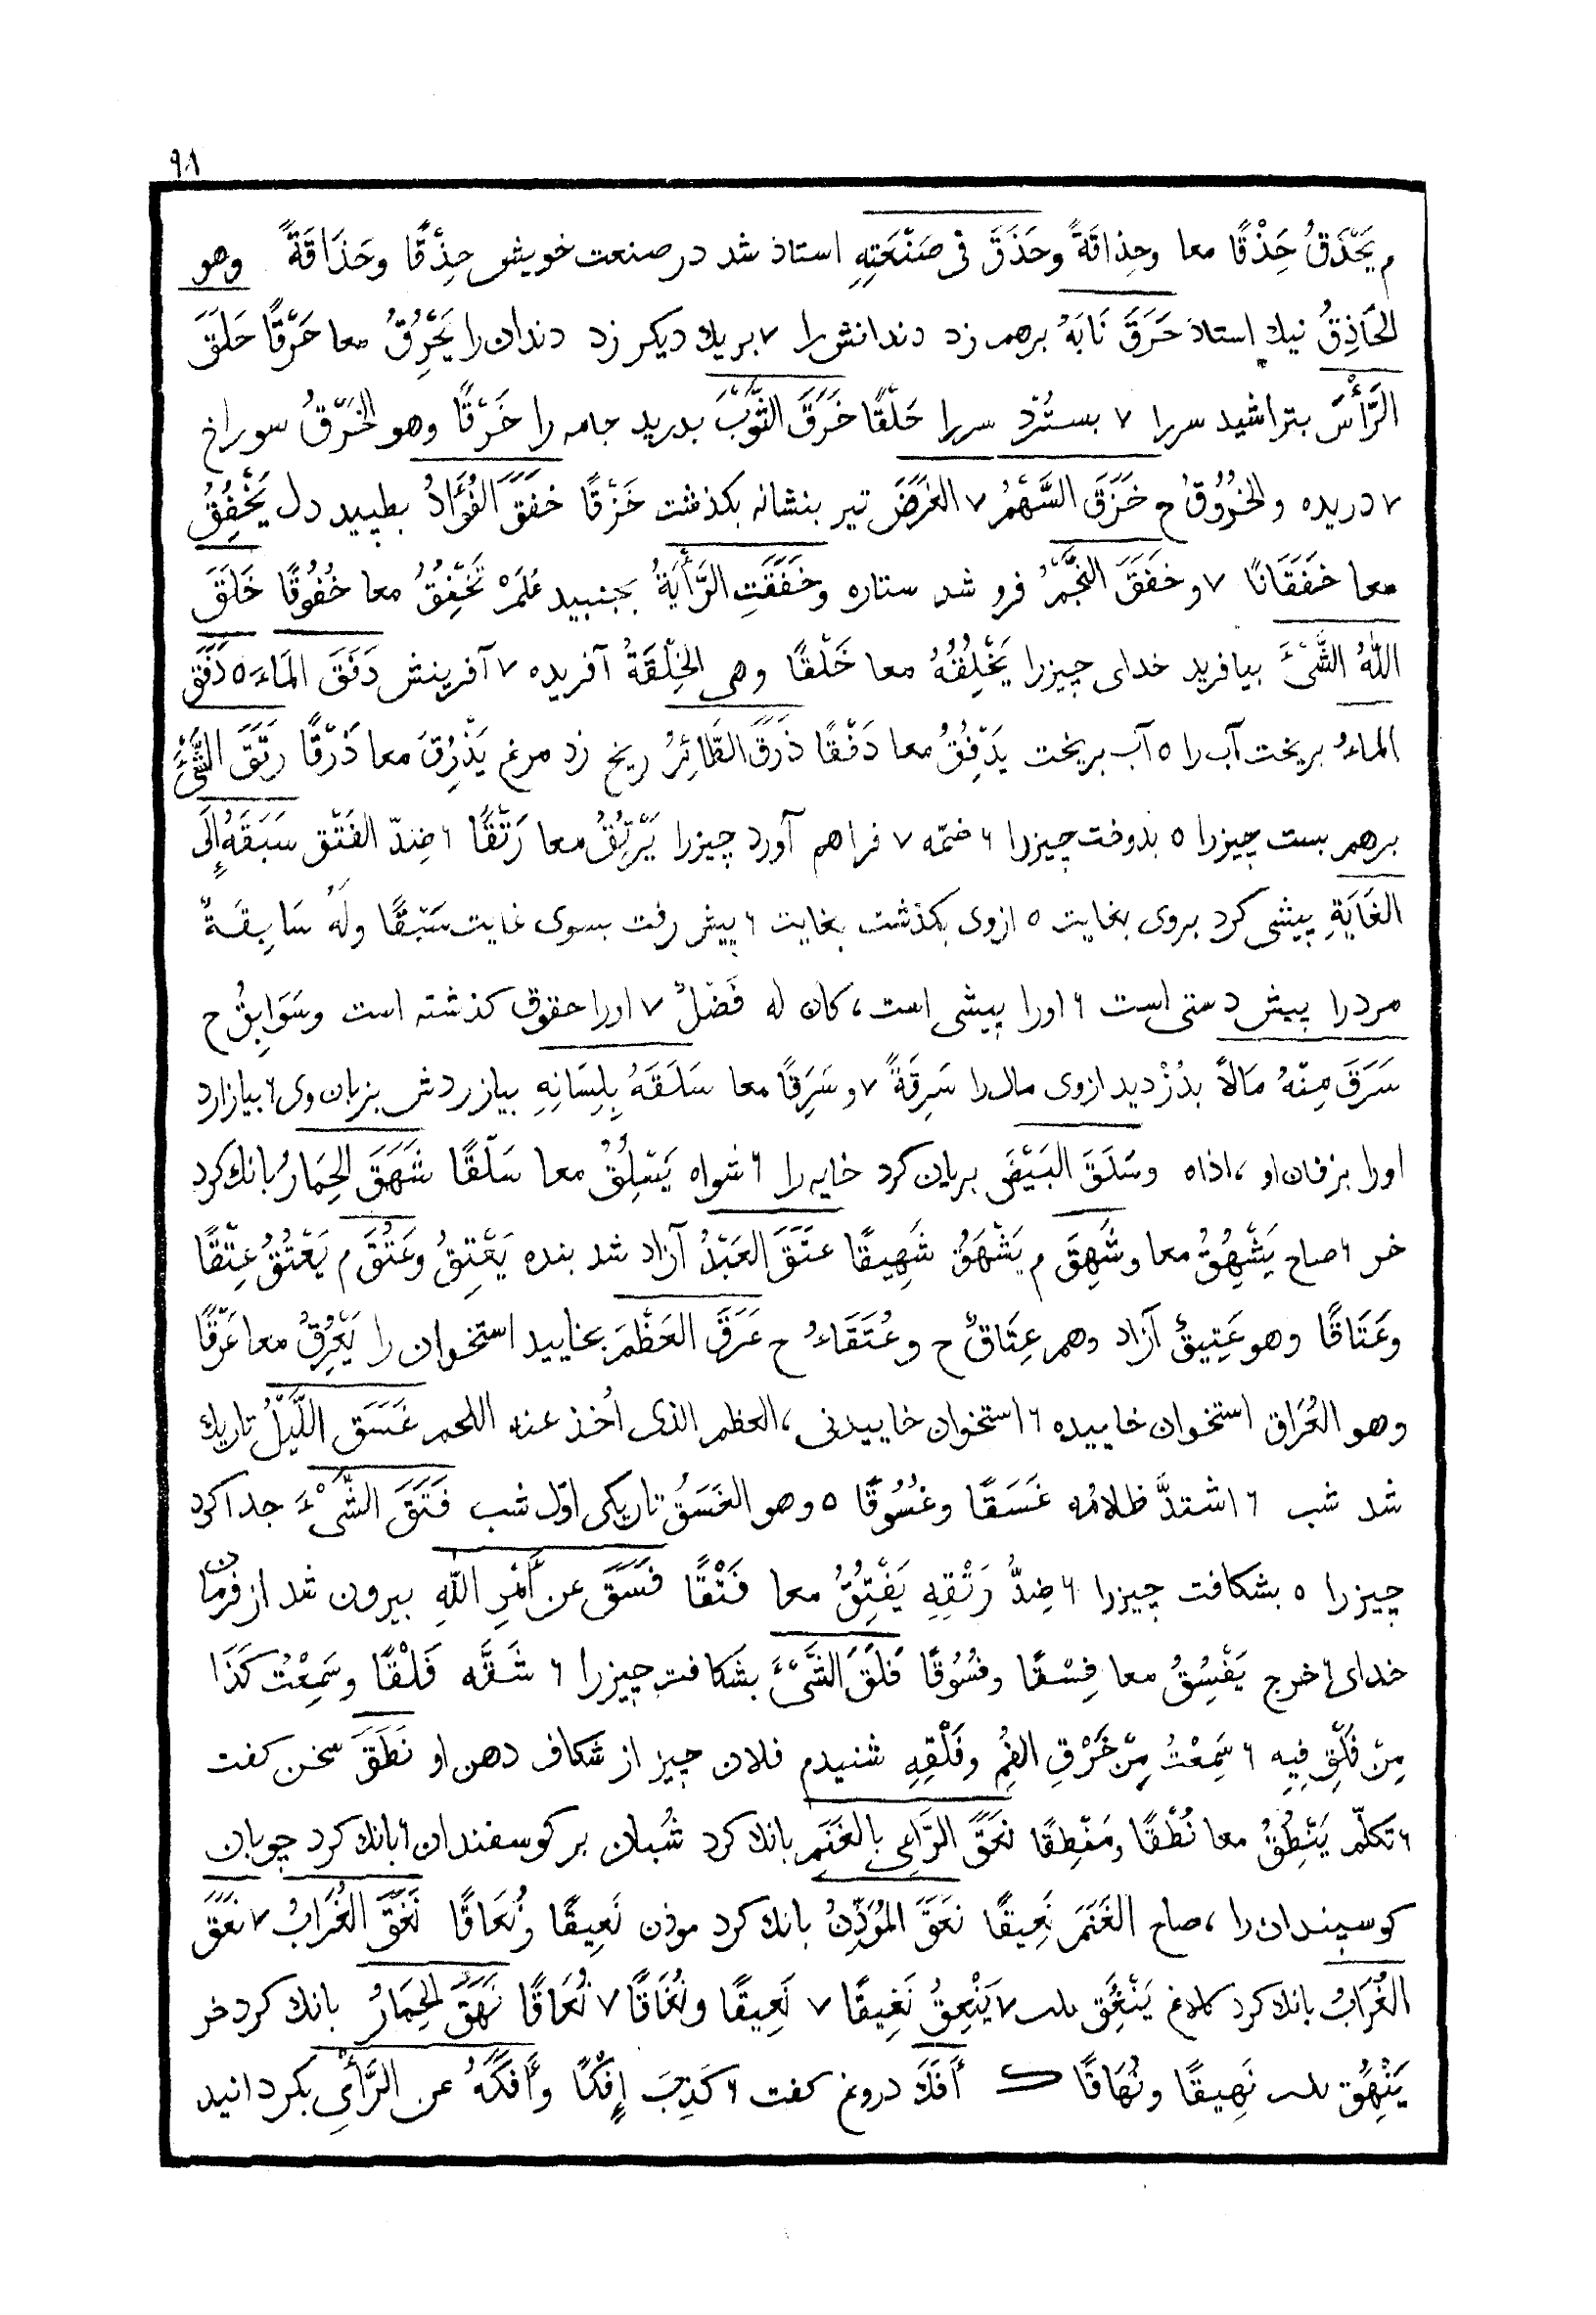 ٩٨
م يَحْذَقُ حَِذْقًا معا وحِذاقَةً وحَذَقَ فى صَنْعَتِهِ استاذ شد در صنعت خویش حِذْقًا وحَذَاقَةً وهو
الحَاذِقُ نیك استاذ حَرَقَ نَابَهُ برهم زد دندانش را ٧ بریك دیکر زد دندان را يَحْرُِقُ معا حَرْقًا حَلَقَ
الرَّأْسَ بتراشید سررا ٧ بستُرد سررا حَلْقًا خَرَقَ الثَّوْبَ بدرید جامه را خَرْقًا وهو الخَرْقُ سوراخ
٧ دریده والخُرُوُقُ ح خَزَقَ السَّهْمُ ٧ الغَرَضَ تیر بنشانه بکذشت خَزْقًا خفَقَ الفُؤَادُ بطپید دل يَخْفُِقُ
معا خفَقَانًا ٧ و خفَقَ النَّجْمُ فرو شد ستاره وخفَقَتِ الرَّأيَةُ بجنبید عَلَمْ تَخْفُِقُ معا خُفُوقًا خَلَقَ
اللهُ الشَّىْءَ بیافرید خدای چیزرا يَخْلُِقُهُ معا خَلْقًا وهی الخِلْقَةُ آفریده ٧ آفرینش دَفَقَ المَاءَ ٥ دَفَقَ
الماءُ بریخت آب را ٥ آب بریخت يَدْفُِقُ معا دَفْقًا ذرَقَ الطَّائِرُ ریخ زد مرغ يَذْرُِقُ معا ذَرْقًا رَتَقَ الشَّىْءَ
برهم بست چیزرا ٥ بدوخت چیزرا ٦ ضمّه ٧ فراهم آورد چیزرا يَرْتُِقُ معا رَتْقًا ٦ ضِدّ الفَتْق سَبَقَهُ إِلَى
الغَايَةِ پیشی کرد بروی بغایت ٥ ازوی بکذشت بغایت ٦ پیش رفت بسوی غایت سَبْقًا ولَهُ سَابِقَةٌ
مردرا پیش دستی است ٦ اورا پیشی است، کان له فَضْلٌ ٧ اورا حقوق کذشته است وسَوَابِقُ ح
سَرَقَ مِنْهُ مَالاً بدُزْدید ازوی مال را سَرِقَةً ٧ و سَرَِقًا معا سَلَقَهُ بِلِسَانِهِ بیازردش بزبان وی ٦ بیازارد
اورا بزفان او ، اذاه وسَلَقَ البَيْضَ بریان کرد خایه را ٦ شواه يَسْلُِقُ معا سَلْقًا شَهَقَ الحِمَارُ بانك کرد
خر ٦ صاح يَشْهِقُ معا وشَهِقَ م يَشْهَقُ شَهِيقًا عتَقَ العَبْدُ آزاد شد بنده يَعْتِقُ وعَتُقَ م يَعْتُقُ عِتْقًا
وعَتَاقًا وهو عَتِيقٌ آزاد وهم عِتَاقٌ ح وعُتَقَاءُ ح عَرَقَ العَظْمَ بخایید استخوان را يَعْرُِقُ معا عَرْقًا
وهو العُرَاق استخوان خاییده ٦ استخوان خاییدنی ، العظم الذی أخذ عنه اللحم غَسَقَ اللَّيْلُ تاریك
شد شب ٦ اشتدَّ ظلامُه غَسَقًا وغُسُوقًا ٥ وهو الغَسَقُ تاریکی اوّل شب فَتَقَ الشَّىْءَ جدا کرد
چیزرا ٥ بشکافت چیزرا ٦ ضِدُّ رَتْقِهِ يَفْتُِقُ معا فَتْقًا فسَقَ عن أَمْرِ اللهِ بیرون شد از فرمان
خدای ٦ خرج يَفْسُِقُ معا فِسْقًا وفُسُوقًا فَلَقَ الشَّىْءَ بشکافت چیزرا ٦ شَقَّه فَلْقًا وسَمِعْتُ كَذَا
مِنْ فَلْقِ فِيهِ ٦ سَمِعْتُ مِنْ خَرْقِ الفِمِ وفَلْقِهِ شنیدم فلان چیز از شکاف دهن او نَطَقَ سخن کفت
٦ تکلّم يَنْطِقُ معا نُطْقًا ومَنْطِقًا نعَقَ الرَّاعِي بالغَنَمِ بانك کرد شُبان بر کوسفندان ٦ بانك کرد چوبان
کوسپندان را ، صاح الغَنَمَ نَعِيقًا نعَقَ المُؤَذِّنُ بانك کرد موذن نَعِيقًا ونُعَاقًا نَغَقَ الغُرَابُ ٧ نعَقَ
الغُرَابُ بانك کرد کلاغ يَنْغَِقُ ٧ يَنْعِقُ نَغِيقًا ٧ نَعِيقًا ونُغَاقًا ٧ نُعَاقًا نَهَقَ الحِمَارُ بانك کرد خر
يَنْهَِقُ نَهِيقًا ونُهَاقًا ك أَفَكَ دروغ کفت ٦ كَذِبَ إِفْكًا وأَفَكَهُ عن الرَّأْيِ بکردانید